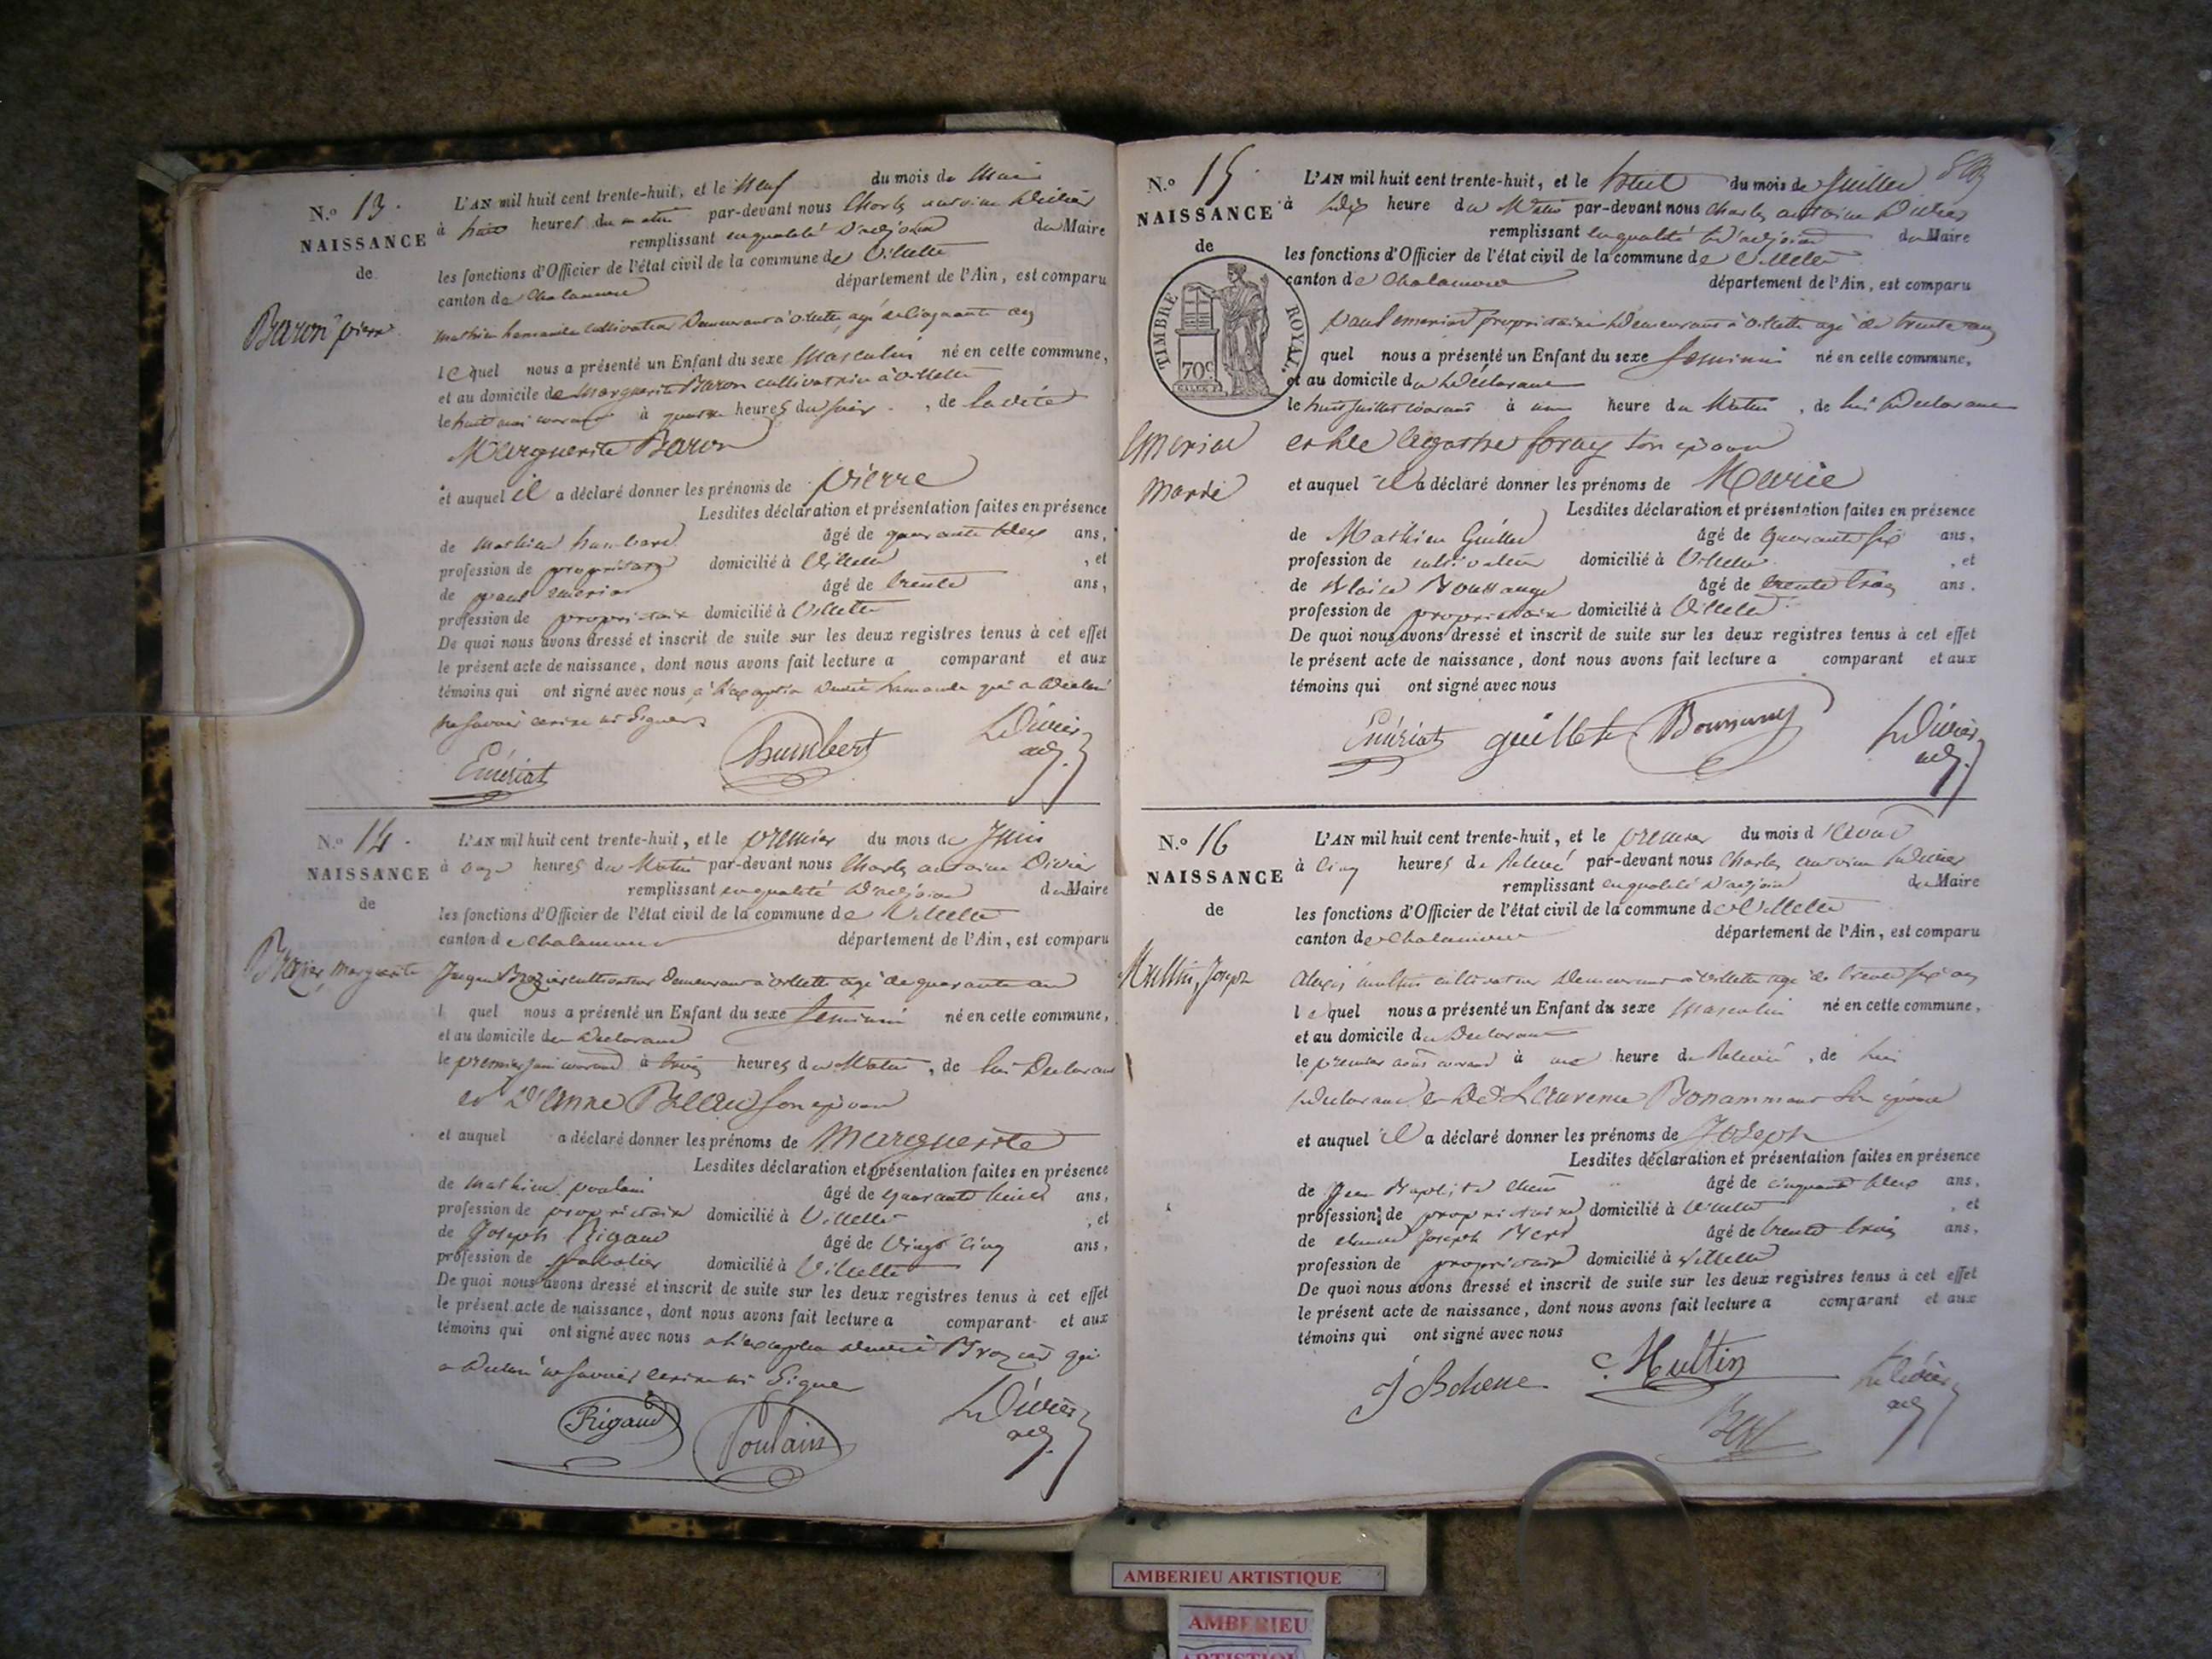 N.º 13.
NAISSANCE
de
Baron pierre
L'AN mil huit cent trente-huit, et le Neuf du mois de Mai
à huit heures du matin par-devant nous Charles antoine Divier
remplissant en qualité d'adjoint du Maire
les fonctions d'Officier de l'état civil de la commune de Villette
canton de Chalamont département de l'Ain, est comparu
mathieu cultivateur demeurant à villette agé de Cinquante ans
lequel nous a présenté un Enfant du sexe Masculin né en cette commune,
et au domicile de Marguerite Baron cultivatrice à villette
le huit mai courant à heures du soir, de ladite
Marguerite Baron
et auquel il a déclaré donner les prénoms de pierre
Lesdites déclaration et présentation faites en présence
de mathieu humbert âgé de quarante deux ans,
profession de propriétaire domicilié à Villette, et
de paul emeriat âgé de trente ans,
profession de propriétaire domicilié à Villette
De quoi nous avons dressé et inscrit de suite sur les deux registres tenus à cet effet
le présent acte de naissance, dont nous avons fait lecture a comparant et aux
témoins qui ont signé avec nous à l'exception dudit qui a déclaré
ne savoir écrire ni Signer
Emériat humbert Divier
adj.
N.º 14.
NAISSANCE
de
Brozier, Marguerite
L'AN mil huit cent trente-huit, et le premier du mois de Juin
à onze heures du Matin par-devant nous Charles antoine Divier
remplissant en qualité d'adjoint du Maire
les fonctions d'Officier de l'état civil de la commune de Villette
canton de Chalamont département de l'Ain, est comparu
Brozier cultivateur demeurant à villette agé de quarante ans
l quel nous a présenté un Enfant du sexe feminin né en cette commune,
et au domicile du Declarant
le premier juin courant à trois heures du Matin, de lui Declarant
et d'anne son epouse
et auquel a déclaré donner les prénoms de Marguerite
Lesdites déclaration et présentation faites en présence
de mathieu poulain âgé de quarante ans,
profession de propriétaire domicilié à Villette, et
de Joseph Rigaud âgé de Vingt Cinq ans,
profession de domicilié à Villette
De quoi nous avons dressé et inscrit de suite sur les deux registres tenus à cet effet
le présent acte de naissance, dont nous avons fait lecture a comparant et aux
témoins qui ont signé avec nous a l'exception dudit Brozier qui
a déclaré ne savoir écrire ni Signer
Rigaud Poulain Divier
adj.
N.º 15
NAISSANCE
de
TIMBRE ROYAL.
70c
Emeriat
Marie
L'AN mil huit cent trente-huit, et le huit du mois de Juillet
à dix heure du Matin par-devant nous Charles antoine Divier
remplissant en qualité d'adjoint du Maire
les fonctions d'Officier de l'état civil de la commune de Villette
canton de Chalamont département de l'Ain, est comparu
paul emeriat propriétaire demeurant à villette agé de trente ans
quel nous a présenté un Enfant du sexe feminin né en cette commune,
et au domicile du déclarant
le huit juillet courant à une heure du Matin, de lui Declarant
et de foray son epouse
et auquel il a déclaré donner les prénoms de Marie
Lesdites déclaration et présentation faites en présence
de Mathieu Guillet âgé de quarante six ans,
profession de cultivateur domicilié à Villette, et
de Blaise Boussange âgé de trente trois ans.
profession de propriétaire domicilié à Villette
De quoi nous avons dressé et inscrit de suite sur les deux registres tenus à cet effet
le présent acte de naissance, dont nous avons fait lecture a comparant et aux
témoins qui ont signé avec nous
Emériat guillet Divier
adj.
N.º 16
NAISSANCE
de
Multin, Joseph
L'AN mil huit cent trente-huit, et le premier du mois d'Aout
à Cinq heures de Relevé par-devant nous Charles antoine Divier
remplissant en qualité d'adjoint du Maire
les fonctions d'Officier de l'état civil de la commune de Villette
canton de Chalamont département de l'Ain, est comparu
Alexis multin cultivateur demeurant à villette agé de trente six ans
lequel nous a présenté un Enfant du sexe Masculin né en cette commune,
et au domicile du Declarant
le premier août courant à une heure de Relevé, de lui
declarant et de Laurence Bonammour son épouse
et auquel il a déclaré donner les prénoms de Joseph
Lesdites déclaration et présentation faites en présence
de Jean Baptiste âgé de cinquante deux ans,
profession de propriétaire domicilié à Villette, et
de Joseph âgé de trente trois ans,
profession de propriétaire domicilié à Villette
De quoi nous avons dressé et inscrit de suite sur les deux registres tenus à cet effet
le présent acte de naissance, dont nous avons fait lecture a comparant et aux
témoins qui ont signé avec nous
Multin Divier
adj
AMBERIEU ARTISTIQUE
AMBERIEU
ARTISTIQU